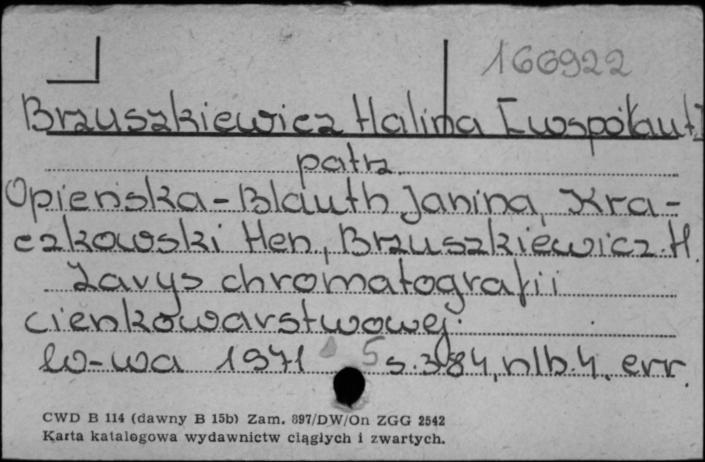 166922
Brzuszkiewicz Halina [współaut.]
patrz
Opieńska-Blauth Janina, Kra-
czkowski Hen., Brzuszkiewicz H.
Zarys chromatografii
cienkowarstwowej.
W-wa 1971 s. 384, nlb. 4, err.
CWD B 114 (dawny B 15b) Zam. 897/DW/On ZGG 2542
Karta katalogowa wydawnictw ciągłych i zwartych.